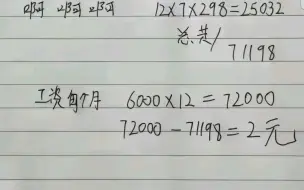 12×7×298=25032
总共/
71198
工资每个月 6000×12=72000
72000-71198=2元